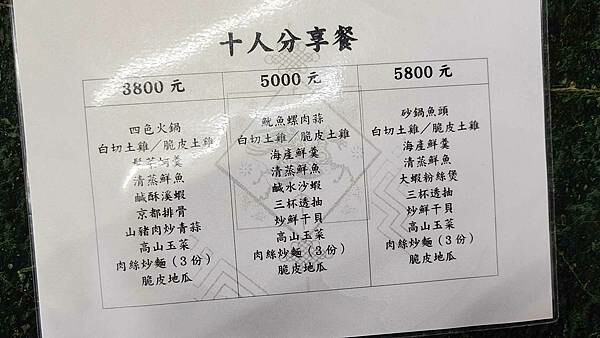 十人分享餐
3800 元
四色火鍋
白切土雞／脆皮土雞
清蒸鮮魚
鹹酥溪蝦
京都排骨
山豬肉炒青蒜
高山玉菜
肉絲炒麵（3份）
脆皮地瓜
5000 元
魷魚螺肉蒜
白切土雞／脆皮土雞
海產鮮羹
清蒸鮮魚
鹹水沙蝦
三杯透抽
炒鮮干貝
高山玉菜
肉絲炒麵（3份）
脆皮地瓜
5800 元
砂鍋魚頭
白切土雞／脆皮土雞
海產鮮羹
清蒸鮮魚
大蝦粉絲煲
三杯透抽
炒鮮干貝
高山玉菜
肉絲炒麵（3份）
脆皮地瓜